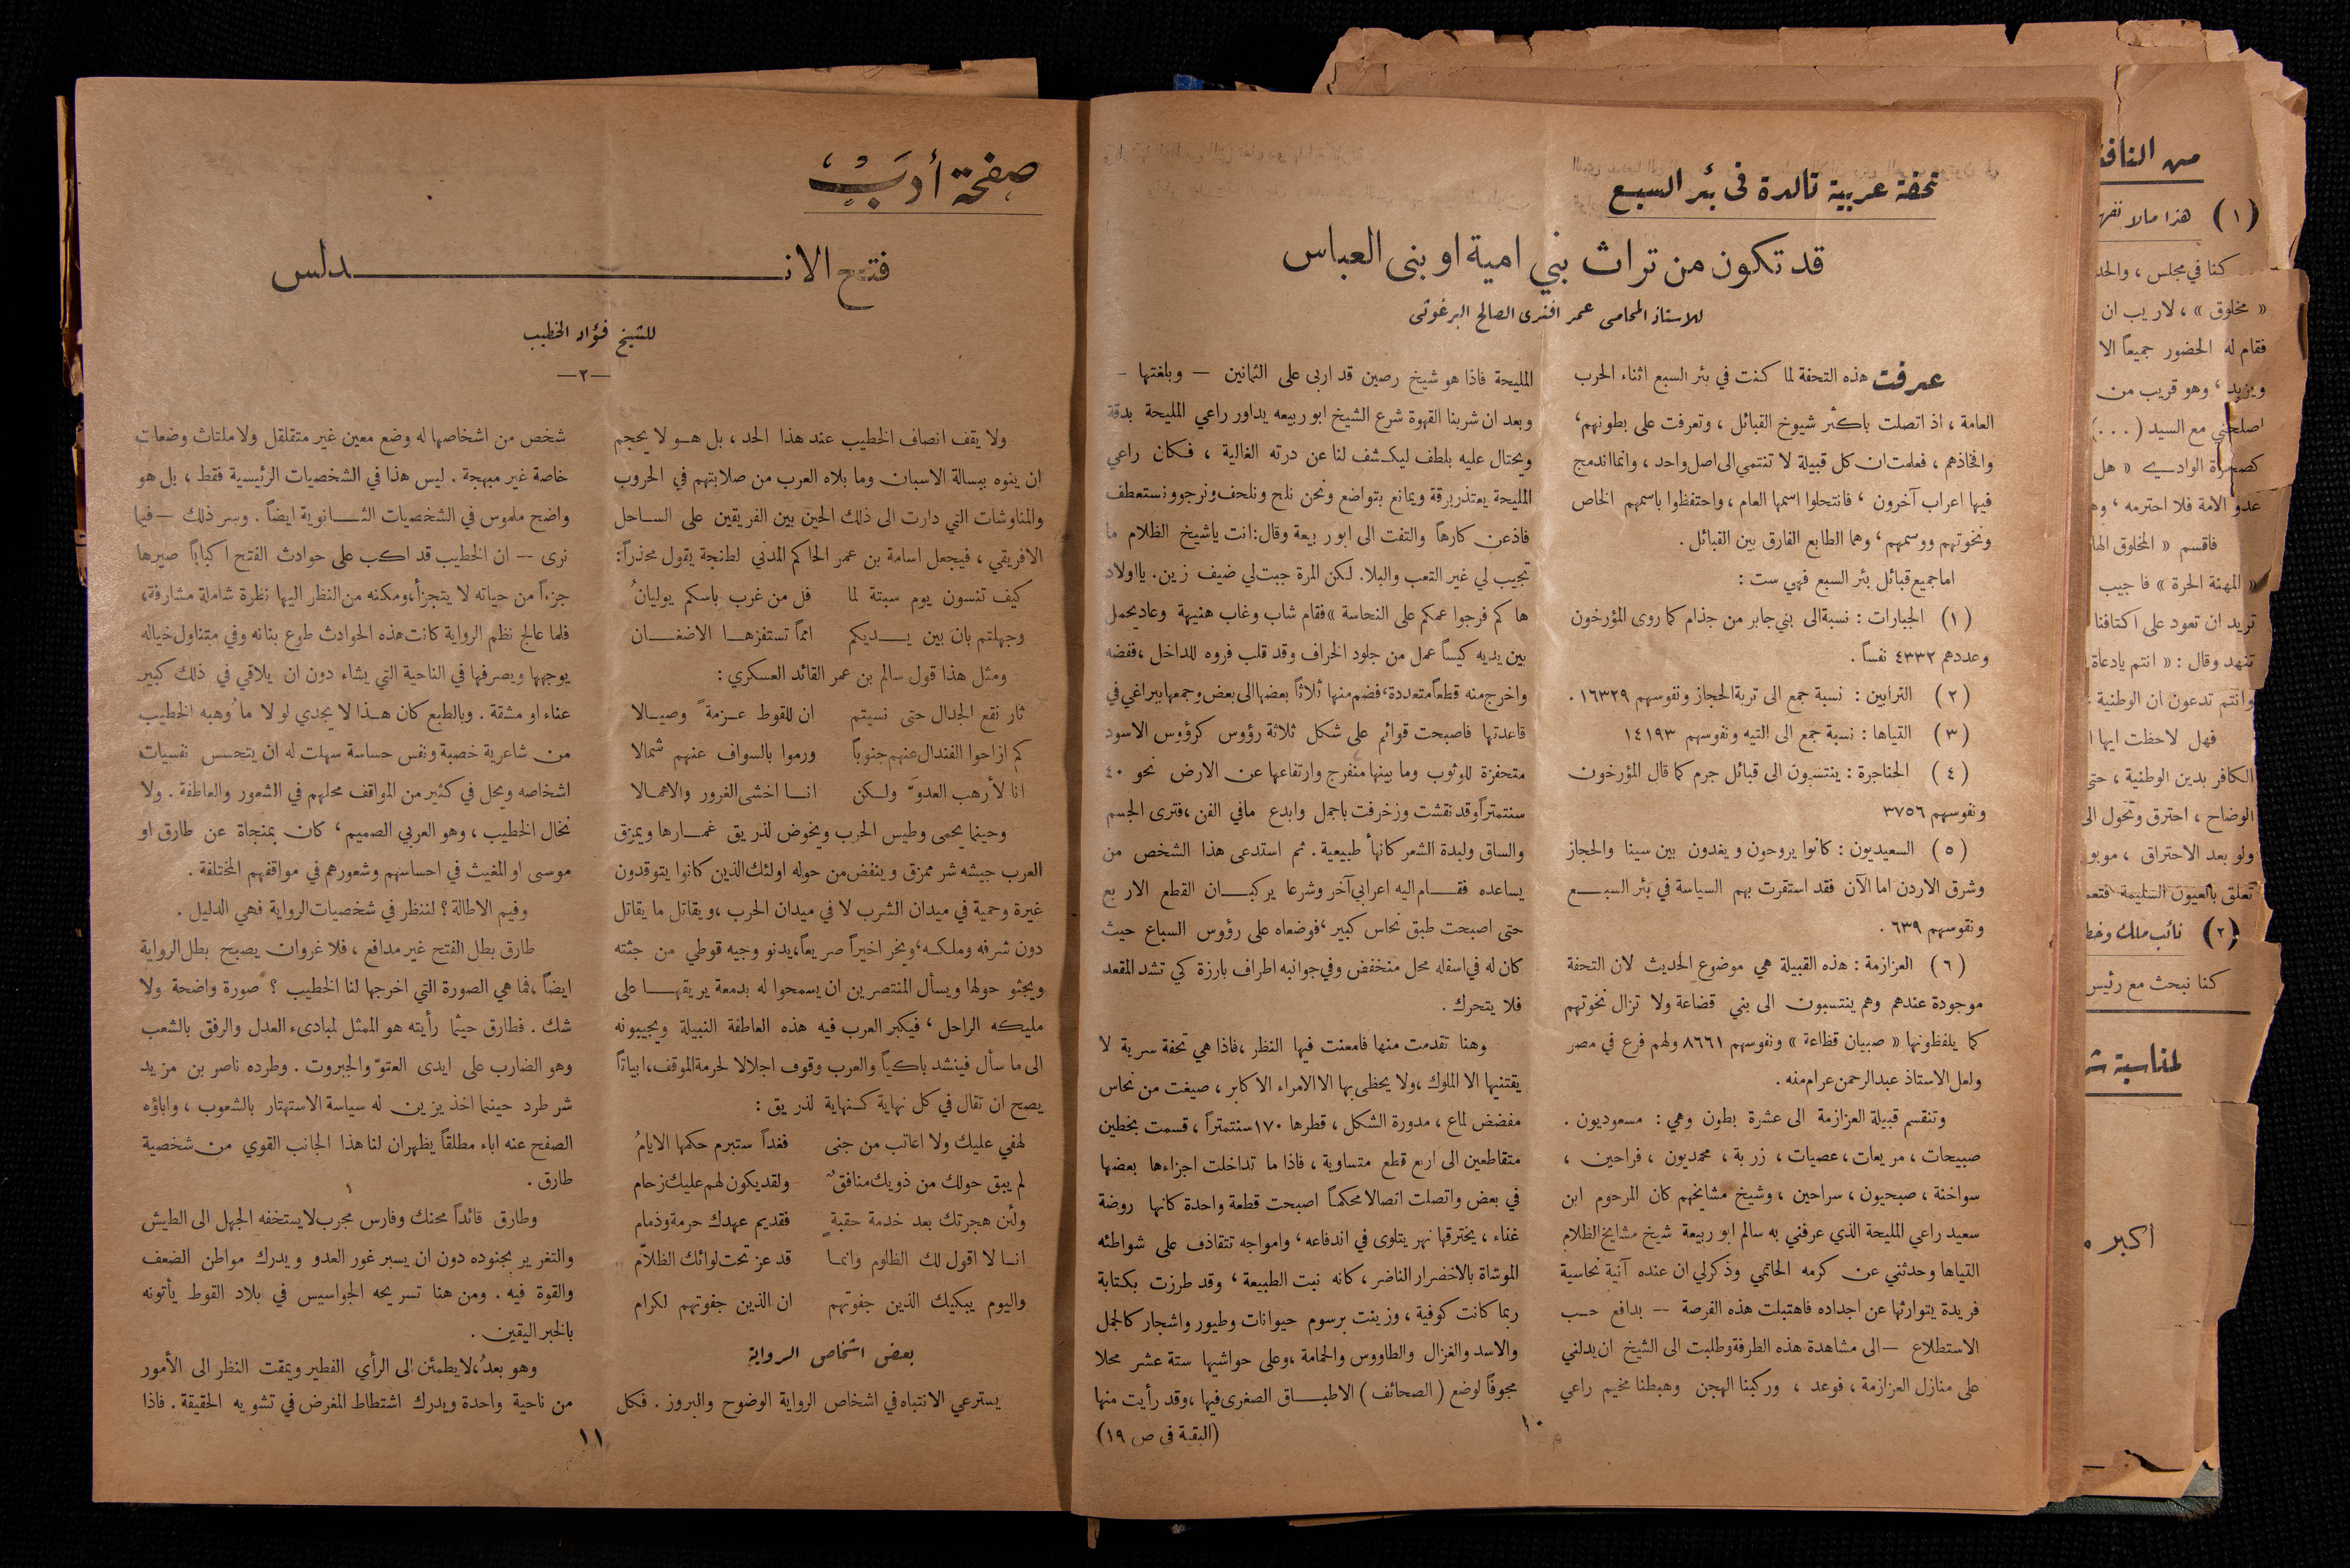 تحفة عربية تالدة في بئر السبع
قد تكون من تراث بني امية او بنى العباس
للاستاذ المحامى عمر افندى الصالح البرغوثى
عرفت هذه التحفة لما كنت في بئر السبع اثناء الحرب
العامة ، اذ اتصلت باكثر شيوخ القبائل ، وتعرفت على بطونهم،
وافخاذهم ، فعلمت ان كل قبيلة لا تنتمي الى اصل واحد ، وانما اندمج
فيها اعراب آخرون ، فانتحلوا اسمها العام ، واحتفظوا باسمهم الخاص
ونخوتهم ووسمهم ، وهما الطابع الفارق بين القبائل .
اما جميع قبائل بئر السبع فهي ست :
(١) الجبارات : نسبة الى بني جابر من جذام كما روى المؤرخون
وعددهم ٤٣٣٢ نفساً .
(٢) الترابين : نسبة جمع الى تربة الحجاز ونفوسهم ١٦٣٢٩ .
(٣) التياها : نسبة جمع الى التيه ونفوسهم ١٤١٩٣
(٤) الحناجرة : ينتسبون الى قبائل جرم كما قال المؤرخون
ونفوسهم ٣٧٥٦
(٥) السعيديون : كانوا يروحون ويغدون بين سينا والحجاز
وشرق الاردن اما الآن فقد استقرت بهم السياسة في بئر السبع
ونفوسهم ٦٣٩ .
(٦) العزازمة : هذه القبيلة هي موضوع الحديث لان التحفة
موجودة عندهم وهم ينتسبون الى بني قضاعة ولا تزال نخوتهم
كما يلفظونها « صبيان قظاعة » ونفوسهم ٨٦٦١ ولهم فرع في مصر
ولعل الاستاذ عبد الرحمن عرام منه .
وتنقسم قبيلة العزازمة الى عشرة بطون وهي : مسعوديون .
صبيحات ، مريعات ، عصيات ، زربة ، محمديون ، فراحين ،
سواخنة ، صبحيون ، سراحين ، وشيخ مشايخهم كان المرحوم ابن
سعيد راعي المليحة الذي عرفني به سالم ابو ربيعة شيخ مشايخ الظلام
التياها وحدثني عن كرمه الحاتمي وذكر لي ان عنده آنية نحاسية
فريدة يتوارثها عن اجداده فاهتبلت هذه الفرصة — بدافع حب
الاستطلاع — الى مشاهدة هذه الطرفة وطلبت الى الشيخ ان يدلني
على منازل العزازمة ، فوعد ، وركبنا الهجن وهبطنا مخيم راعي
المليحة فاذا هو شيخ رصين قد اربى على الثمانين — وبلغتها —
وبعد ان شربنا القهوة شرع الشيخ ابو ربيعه يداور راعي المليحة بدقة
ويحتال عليه بلطف ليكشف لنا عن درته الغالية ، فكان راعي
المليحة يعتذر برقة ويمانع بتواضع ونحن نلح ونلحف ونرجو ونستعطف
فاذعن كارهاً والتفت الى ابو ربيعة وقال: انت ياشيخ الظلام ما
تجيب لي غير التعب والبلا. لكن المرة جبت لي ضيف زين. يا اولاد
ها كم فرجوا عمكم على النحاسة » فقام شاب وغاب هنيهة وعاد يحمل
بين يديه كيساً عمل من جلود الخراف وقد قلب فروه للداخل ، ففضه
واخرج منه قطعاً متعددة، فضم منها ثلاثاً بعضها الى بعض وجمعها ببراغي في
قاعدتها فاصبحت قوائم على شكل ثلاثة رؤوس كرؤوس الاسود
متحفزة للوثوب وما بينها منفرج وارتفاعها عن الارض نحو ٤٠
سنتمتراً وقد نقشت وزخرفت باجمل وابدع مافي الفن ، فترى الجسم
والساق وليدة الشعر كانها طبيعية . ثم استدعى هذا الشخص من
يساعده فقام اليه اعرابي آخر وشرعا يركبان القطع الاربع
حتى اصبحت طبق نحاس كبير ، فوضعاه على رؤوس السباع حيث
كان له في اسفله محل منخفض وفي جوانبه اطراف بارزة كي تشد المقعد
فلا يتحرك .
وهنا تقدمت منها فامعنت فيها النظر ، فاذا هي تحفة سرية لا
يقتنيها الا الملوك ، ولا يحظى بها الا الامراء الاكابر ، صيغت من نحاس
مفضض لماع ، مدورة الشكل ، قطرها ١٧٠ سنتمتراً ، قسمت بخطين
متقاطعين الى اربع قطع متساوية ، فاذا ما تداخلت اجزاءها بعضها
في بعض واتصلت اتصالا محكماً اصبحت قطعة واحدة كانها روضة
غناء ، يخترقها نهر يتلوى في اندفاعه ، وامواجه تتقاذف على شواطئه
الموشاة بالاخضرار الناضر ، كانه نبت الطبيعة ، وقد طرزت بكتابة
ربما كانت كوفية ، وزينت برسوم حيوانات وطيور واشجار كالجمل
والاسد والغزال والطاووس والحمامة ، وعلى حواشيها ستة عشر محلا
مجوفاً لوضع ( الصحائف ) الاطباق الصغرى فيها ، وقد رأيت منها
(البقية في ص ١٩)
١٠
صفحة أدب
فتح الاندلس
للشيخ فؤاد الخطيب
—٢—
ولا يقف انصاف الخطيب عند هذا الحد ، بل هو لا يحجم
ان ينوه ببسالة الاسبان وما بلاه العرب من صلابتهم في الحروب
والمناوشات التي دارت الى ذلك الحين بين الفريقين على الساحل
الافريقي ، فيجعل اسامة بن عمر الحاكم المدني لطنجة يقول محذراً :
كيف تنسون يوم سبتة لما فل من غرب باسكم يوليانُ
وجهلتم بان بين يديكم امماً تستفزها الاضغان
ومثل هذا قول سالم بن عمر القائد العسكري :
ثار نقع الجدال حتى نسيتم ان للقوط عزمةً وصيالا
كم ازاحوا الفندال عنهم جنوباً ورموا بالسواف عنهم شمالا
انا لا أرهب العدوَّ ولكن انا اخشى الغرور والاهمالا
وحينما يحمى وطيس الحرب ويخوض لذريق غمارها ويمزق
العرب جيشه شر ممزق وينفض من حوله اولئك الذين كانوا يتوقدون
غيرة وحمية في ميدان الشرب لا في ميدان الحرب ، ويقاتل ما يقاتل
دون شرفه وملكه، ويخر اخيراً صريعاً، يدنو وجيه قوطي من جثته
ويجثو حولها ويسأل المنتصرين ان يسمحوا له بدمعة يريقها على
مليكه الراحل ، فيكبر العرب فيه هذه العاطفة النبيلة ويجيبونه
الى ما سأل فينشد باكياً والعرب وقوف اجلالا لحرمة الموقف، ابياتاً
يصح ان تقال في كل نهاية كنهاية لذريق :
لهفي عليك ولا اعاتب من جنى فغداً ستبرم حكمها الايامُ
لم يبق حولك من ذويك منافقٌ ولقد يكون لهم عليك زحام
ولئن هجرتك بعد خدمة حقبةٍ فقديم عهدك حرمة وذمام
انا لا اقول لك الظلوم وانما قد عز تحت لوائك الظلاّم
واليوم يبكيك الذين جفوتهم ان الذين جفوتهم لكرام
بعض اشخاص الرواية
يسترعي الانتباه في اشخاص الرواية الوضوح والبروز . فكل
شخص من اشخاصها له وضع معين غير متقلقل ولا ملتاث وضعات
خاصة غير مبهجة . ليس هذا في الشخصيات الرئيسية فقط ، بل هو
واضح ملموس في الشخصيات الثانوية ايضاً . وسر ذلك — فيما
نرى — ان الخطيب قد اكب على حوادث الفتح اكباباً صيرها
جزءاً من حياته لا يتجزأ، ومكنه من النظر اليها نظرة شاملة مشارفة،
فلما عالج نظم الرواية كانت هذه الحوادث طوع بنانه وفي متناول خياله
يوجهها ويصرفها في الناحية التي يشاء دون ان يلاقي في ذلك كبير
عناء او مشقة . وبالطبع كان هذا لا يجدي لو لا ما وهبه الخطيب
من شاعرية خصبة ونفس حساسة سهلت له ان يتحسس نفسيات
اشخاصه ويحل في كثير من المواقف محلهم في الشعور والعاطفة . ولا
نخال الخطيب ، وهو العربي الصميم ، كان بمنجاة عن طارق او
موسى او المغيث في احساسهم وشعورهم في مواقفهم المختلفة .
وفيم الاطالة ؟ لننظر في شخصيات الرواية فهي الدليل .
طارق بطل الفتح غير مدافع ، فلا غروان يصبح بطل الرواية
ايضاً ، فما هي الصورة التي اخرجها لنا الخطيب ؟ صورة واضحة ولا
شك . فطارق حيثما رأيته هو الممثل لمبادىء العدل والرفق بالشعب
وهو الضارب على ايدى العتوّ والجبروت . وطرده ناصر بن مزيد
شر طرد حينما اخذ يزين له سياسة الاستهتار بالشعوب ، واباؤه
الصفح عنه اباء مطلقاً يظهران لنا هذا الجانب القوي من شخصية
طارق .
وطارق قائداً محنك وفارس مجرب لا يستخفه الجهل الى الطيش
والتغرير بجنوده دون ان يسبر غور العدو ويدرك مواطن الضعف
والقوة فيه . ومن هنا تسريحه الجواسيس في بلاد القوط يأتونه
بالخبر اليقين .
وهو بعدُ، لا يطمئن الى الرأي الفطير ويمقت النظر الى الأمور
من ناحية واحدة ويدرك اشتطاط المغرض في تشويه الحقيقة . فاذا
١١
من النافذ
(١) هذا مالا نفه
كنا في مجلس ، والحد
« مخلوق » ، لاريب ان
فقام له الحضور جميعاً الا
ويزيد ، وهو قريب من
اصلحني مع السيد (...)
كصخرة الوادي « هل
عدو الامة فلا احترمه ، وه
فاقسم « المخلوق الها
« المهنة الحرة » فاجيب
تريد ان تعود على اكتافنا
تنهد وقال : « انتم يادعاة
وانتم تدعون ان الوطنية
فهل لاحظت ايها ا
الكافر بدين الوطنية ، حتى
الوضاح ، احترق وتحول الى
ولو بعد الاحتراق ، موبو
تعلق بالعيون السليمة فتعم
(٢) نائب ملك وخط
كنا نبحث مع رئيس
لمناسبة
اكبر